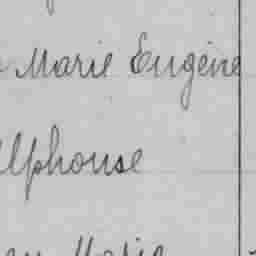 Marie Eugène
Alphonse
Marie